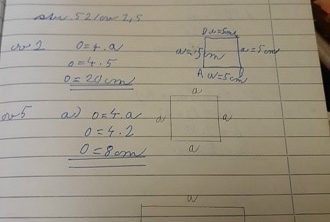 str. 52/cv 2, 5
cv 2 O=4.a
O=4.5
O=20cm
D a=5cm
a=5cm a=5cm
A a=5cm
cv 5 a) O=4.a
O=4.2
O=8cm
a
a a
a
a